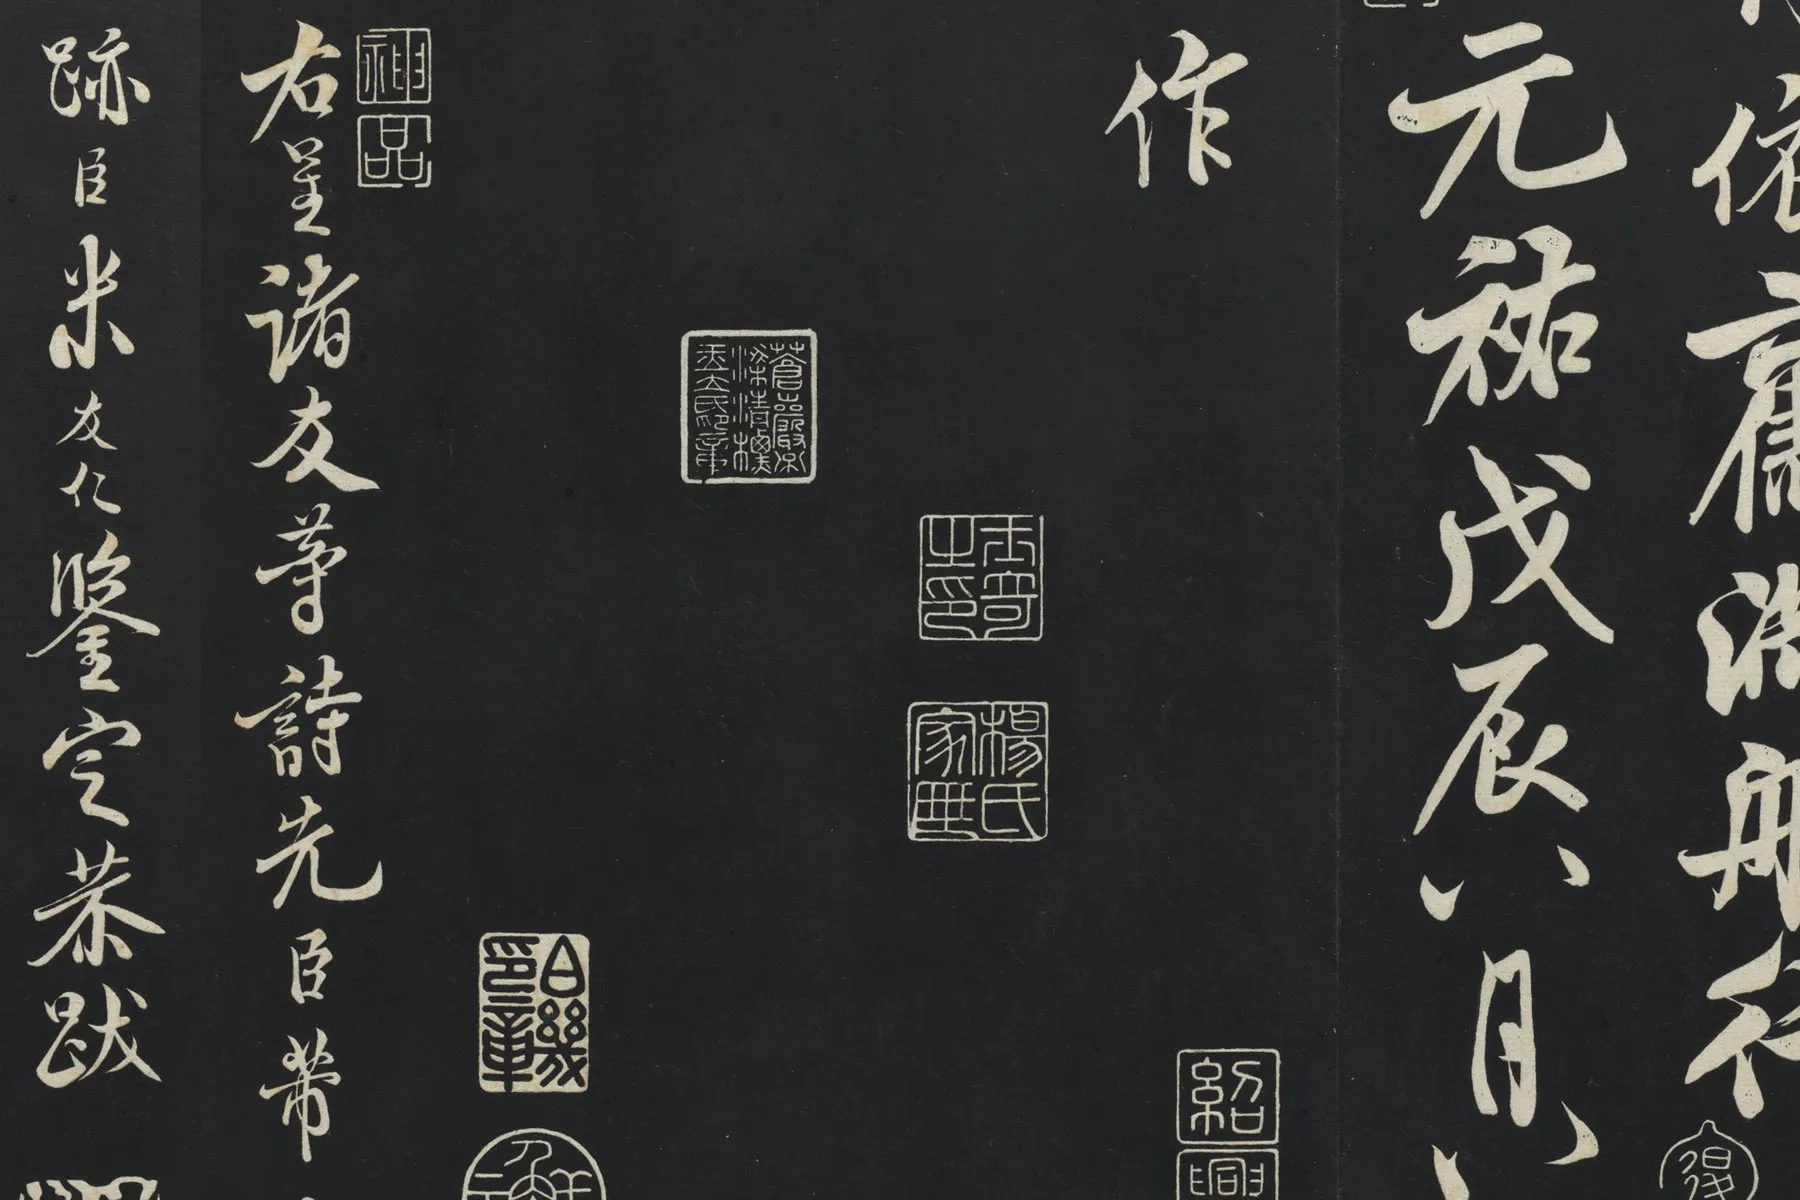 依舊滿船行
元祐戊辰八月八
作
紹興
楊氏家
蒼巖子梁清標玉立氏印章
神品
右呈諸友等詩先臣芾
跡臣米友仁鑒定恭跋